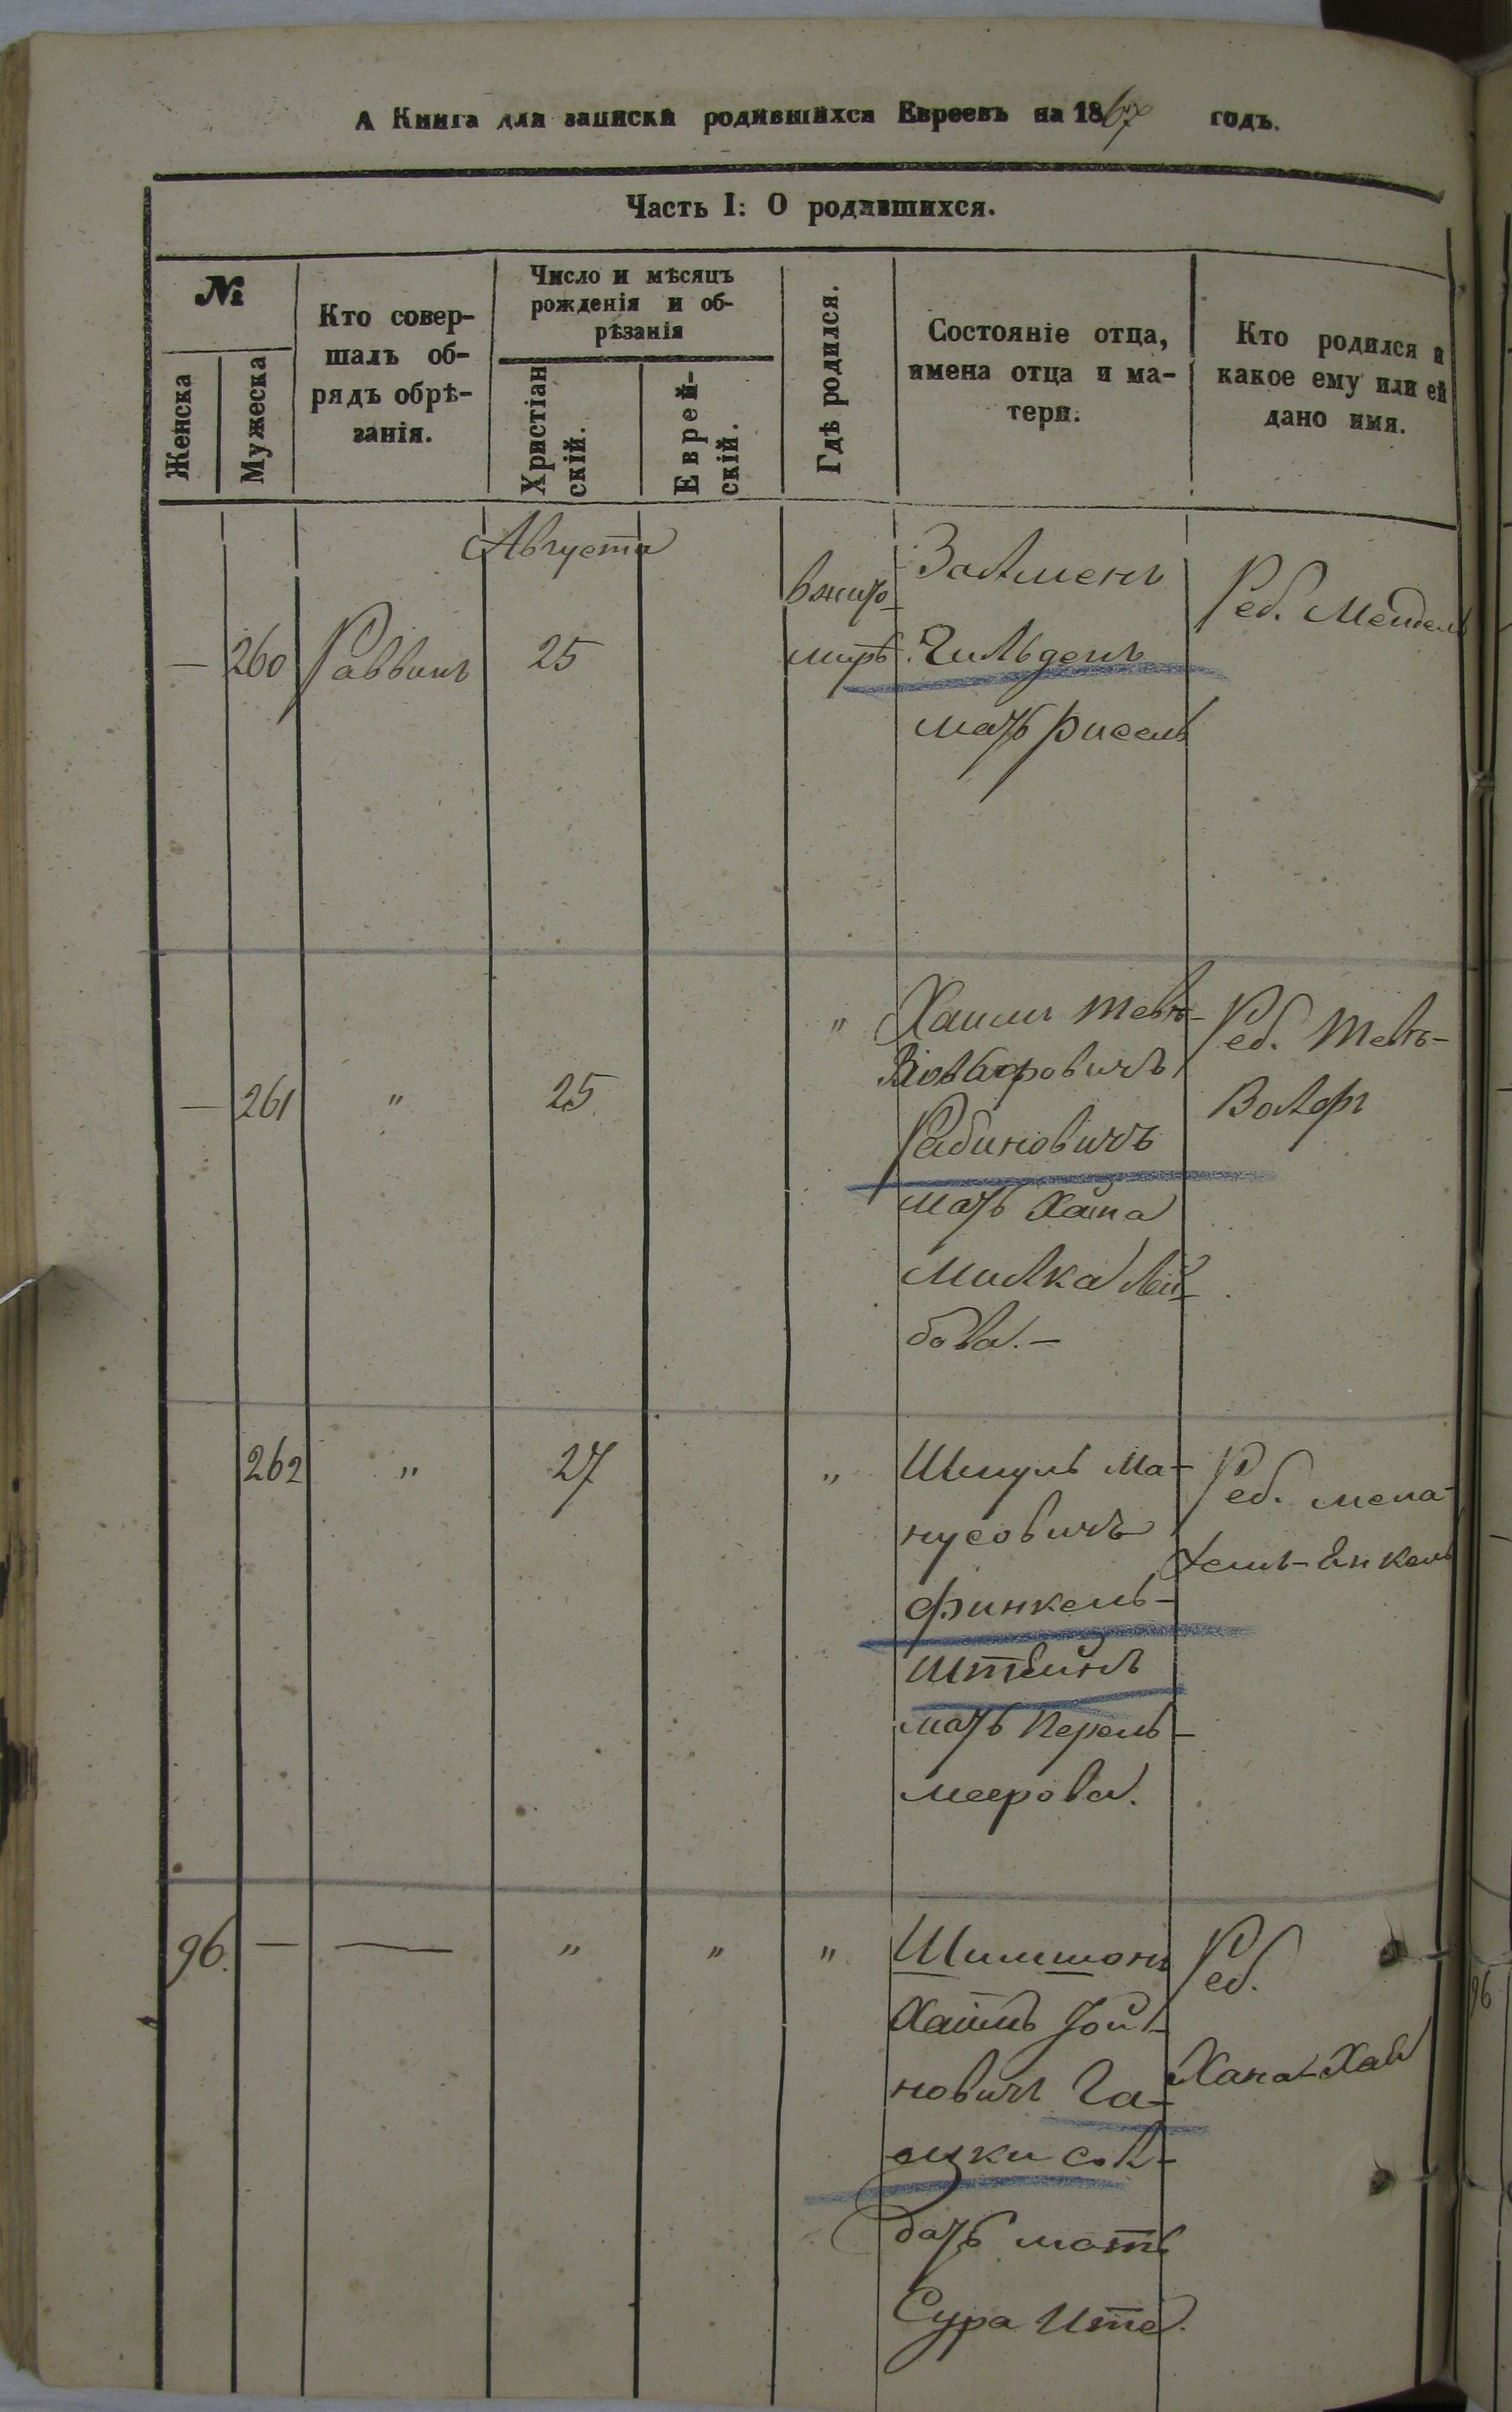 А Книга для записки родившихся Евреевъ на 1867 годъ.
Часть I: О родившихся.
№
Женска
Мужеска
Кто совер-
шалъ об-
рядъ обрѣ-
занія.
Число и мѣсяцъ
рожденія и об-
рѣзанія
Христіан
скій.
Еврей-
скій.
Гдѣ родился.
Состояніе отца,
имена отца и ма-
тери.
Кто родился и
какое ему или ей
дано имя.
Августа
— 260 Раввинъ 25
в жито-
мирѣ
Залменъ
Гильденъ
мать Рисель
Реб. Мендель
— 261 " 25 "
Хаимъ Тевъ-
Вольфовичъ
Рабиновичъ
мать Хана
Милка Лей-
бова.—
Реб. Тевъ-
Волфъ
262 " 27 "
Шмуль Ма-
нусовичъ
Финкель-
штейнъ
мать Перель-
меерова.
Реб. Мена-
хемъ-Янкель
96. — — " " "
Шимшонъ
Хаимъ Йой-
новичъ Га-
ецки сол-
датъ мать
Сура Ите.
Реб.
Хана-Хая
96